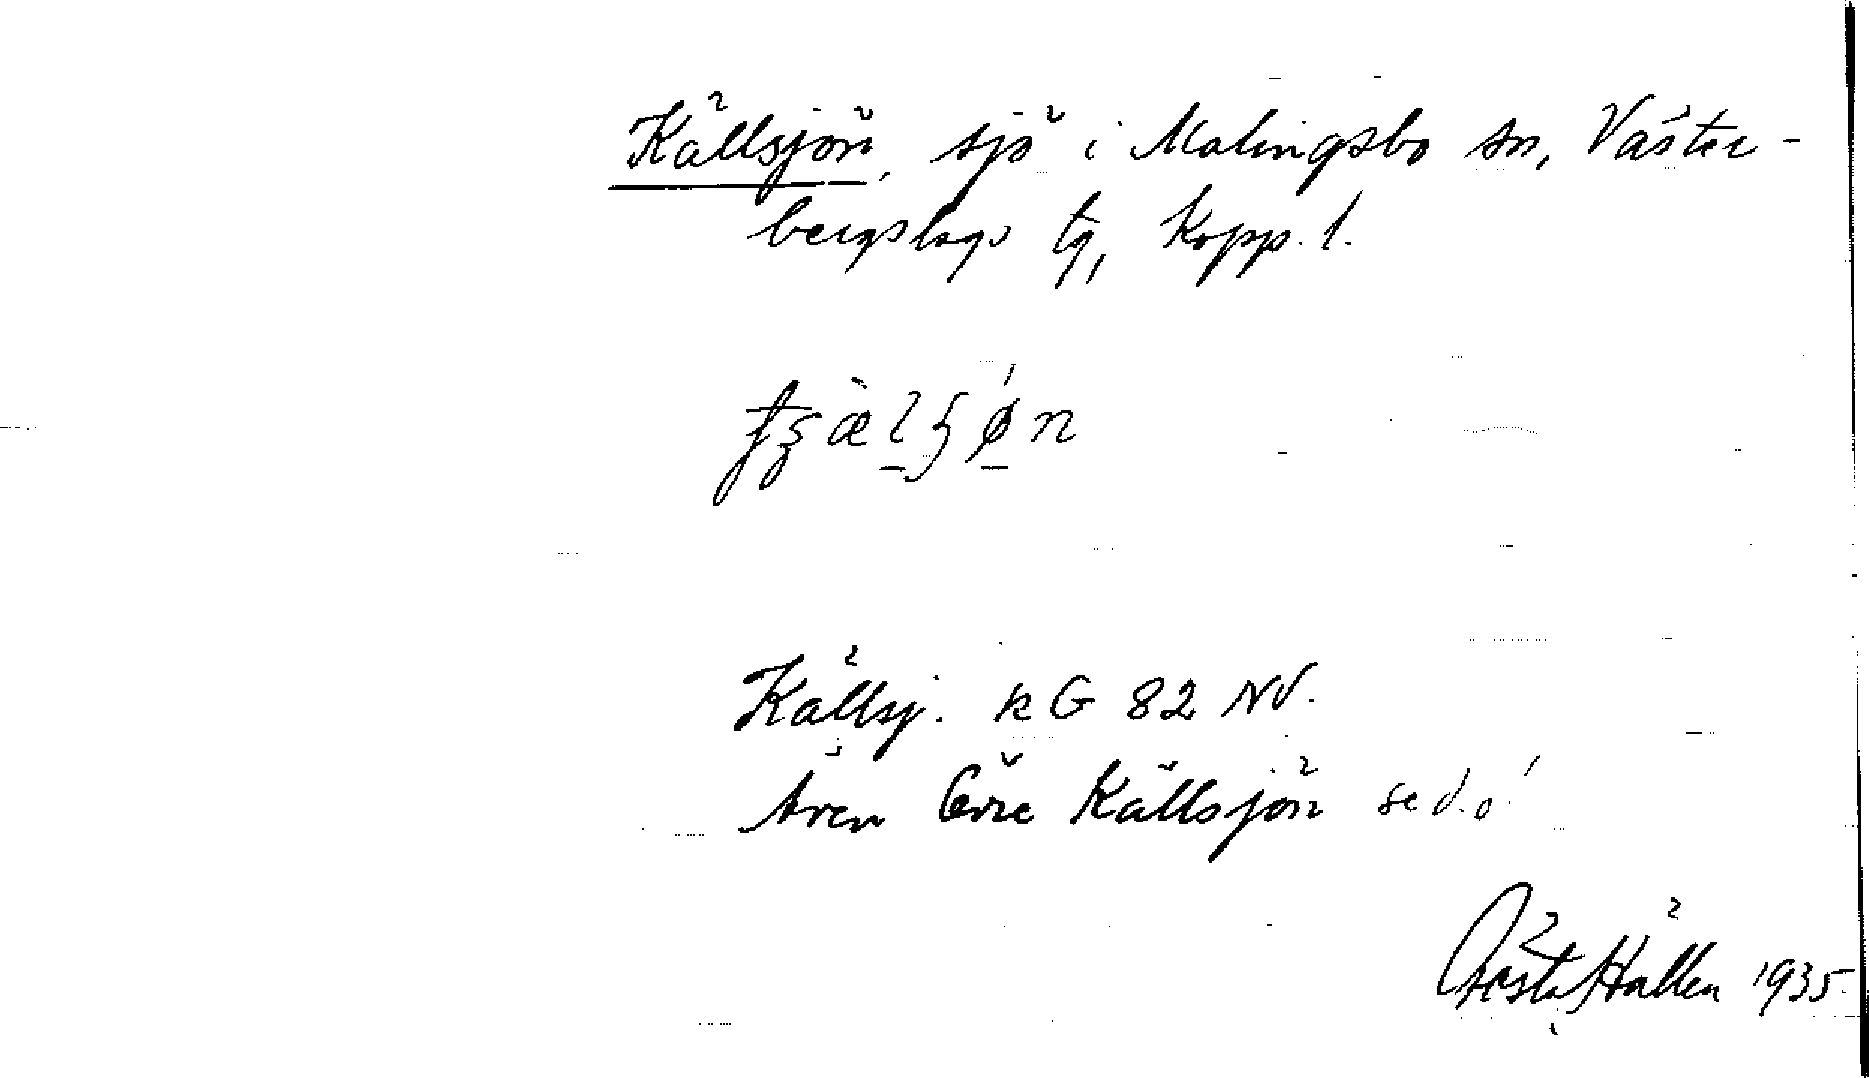 Källsjön, sjö i Malingsbo sn, Väster-
bergslags tg, Kopp. l.
Källsj. kG 82 NV.
även Övre Källsjön se d.o!
Gösta Hällen 1935.